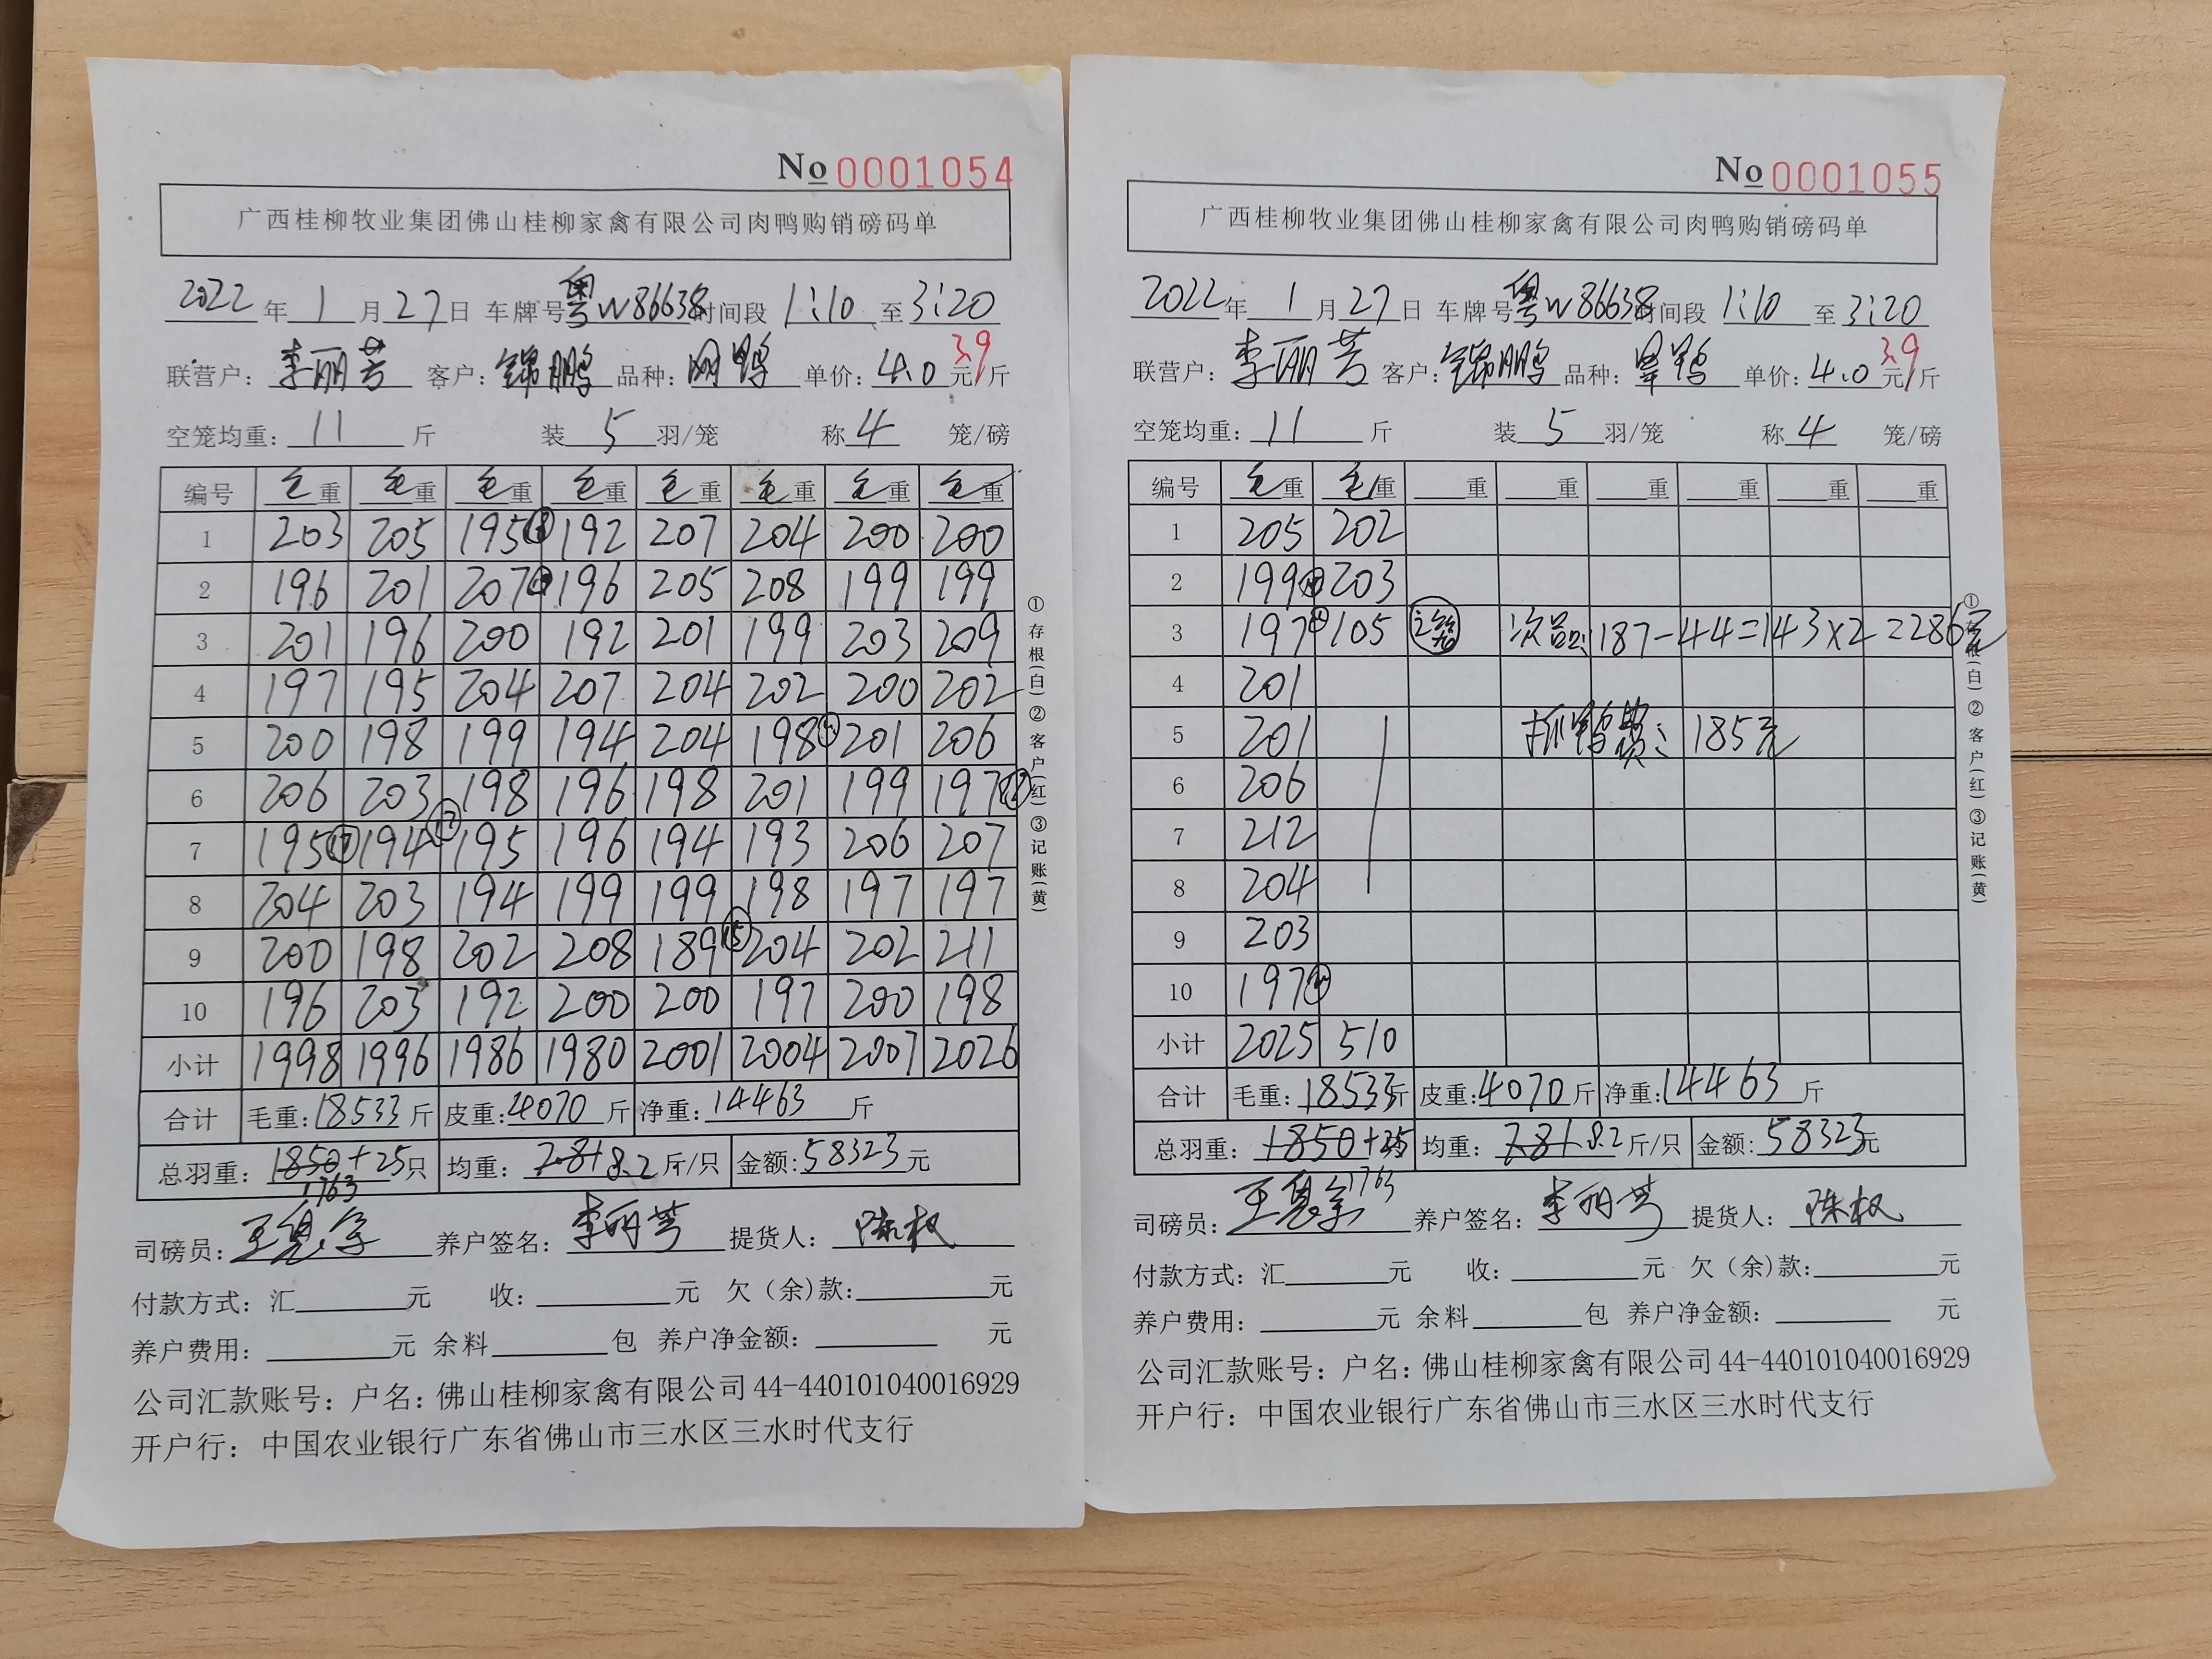 No 0001054
广西桂柳牧业集团佛山桂柳家禽有限公司肉鸭购销磅码单
2022年1月27日 车牌号粤W86638时间段 1:10 至 3:20
联营户: 李丽芳 客户: 锦鹏 品种: 单价: 4.0元/斤 3.9
空笼均重: 11 斤 装 5 羽/笼 称 4 笼/磅
编号 毛重 毛重 毛重 毛重 毛重 毛重 毛重 毛重
1 203 205 195 192 207 204 200 200
2 196 201 207 196 205 208 199 199
3 201 196 200 192 201 199 203 209
4 197 195 204 207 204 202 200 202
5 200 198 199 194 204 198 201 206
6 206 203 198 196 198 201 199 197
7 195 194 195 196 194 193 206 207
8 204 203 194 199 199 198 197 197
9 200 198 202 208 189 204 202 211
10 196 203 192 200 200 197 200 198
小计 1998 1996 1986 1980 2001 2004 2007 2026
合计 毛重: 18533 斤 皮重: 4070 斤 净重: 14463 斤
总羽重: 1850+25只 均重: 7.81 8.2 斤/只 金额: 58323 元
1763
司磅员: 养户签名: 李丽芳 提货人: 陈权
付款方式: 汇 元 收: 元 欠(余)款: 元
养户费用: 元 余料 包 养户净金额: 元
公司汇款账号: 户名: 佛山桂柳家禽有限公司 44-440101040016929
开户行: 中国农业银行广东省佛山市三水区三水时代支行
①存根(白)②客户(红)③记账(黄)
No 0001055
广西桂柳牧业集团佛山桂柳家禽有限公司肉鸭购销磅码单
2022年1月27日 车牌号粤W86638时间段 1:10 至 3:20
联营户: 李丽芳 客户: 锦鹏 品种: 单价: 4.0元/斤 3.9
空笼均重: 11 斤 装 5 羽/笼 称 4 笼/磅
编号 毛重 毛重 重 重 重 重 重 重
1 205 202
2 199 203
3 197 105 2笼 次品: 187-44=143×2=286元
4 201
5 201 抓鸭费: 185元
6 206
7 212
8 204
9 203
10 197
小计 2025 510
合计 毛重: 18533斤 皮重: 4070 斤 净重: 14463 斤
总羽重: 1850+25 均重: 7.81 8.2 斤/只 金额: 58323元
1763
司磅员: 养户签名: 李丽芳 提货人: 陈权
付款方式: 汇 元 收: 元 欠(余)款: 元
养户费用: 元 余料 包 养户净金额: 元
公司汇款账号: 户名: 佛山桂柳家禽有限公司 44-440101040016929
开户行: 中国农业银行广东省佛山市三水区三水时代支行
①存根(白)②客户(红)③记账(黄)